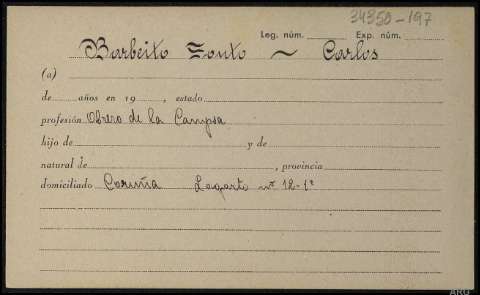 34350-197
Leg. núm. Exp. núm.
Barbeito Souto ~ Carlos
(a)
de años en 19 , estado
profesión Obrero de la Campsa
hijo de y de
natural de , provincia
domiciliado Coruña Lagarto nº 12-1º
ARG